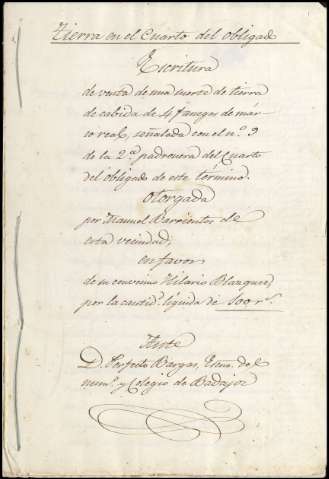 Tierra en el Cuarto del obligad
Escritura
de venta de una suerte de tierra
de cabida de 4 fanegas de már-
co real, señalada con el nº 9
de la 2ª padronera del Cuarto
del obligado de este término.
otorgada
por Manuel Barrientos de
esta vecindad;
en favor
de su convecino Hilario Blazquez
por la cantid. líquida de 100 rs.
Ante
D. Perfecto Bargas, Esno. del
numº y Colegio de Badajoz